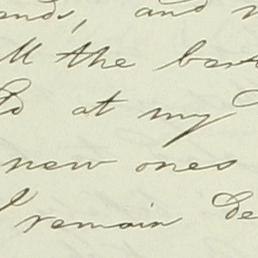 ends, and
ll the best
at my
new ones
I remain De